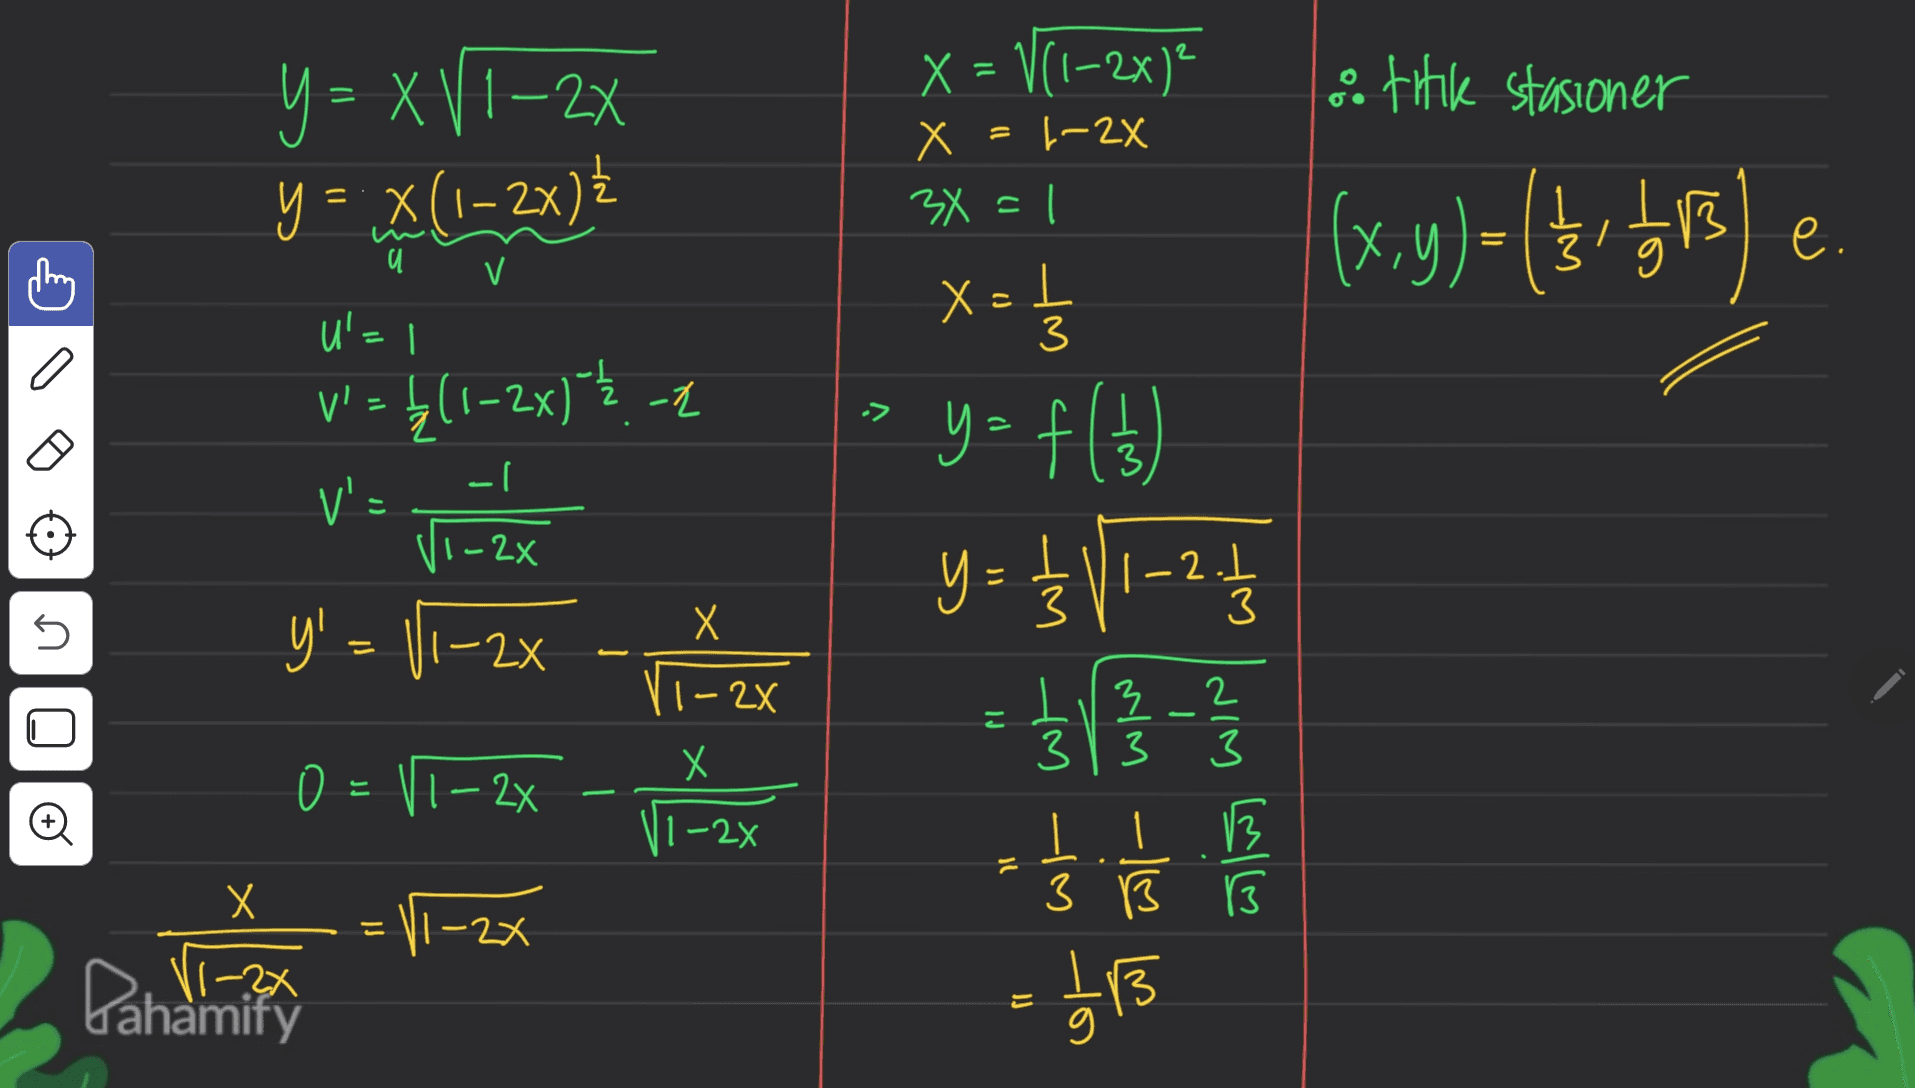 y = x√(1-2x)
y = x(1-2x)^½
u v
u' = 1
v' = ½(1-2x)^-½ . -2
v' = -1/√(1-2x)
y' = √(1-2x) - x/√(1-2x)
0 = √(1-2x) - x/√(1-2x)
x/√(1-2x) = √(1-2x)
Pahamify
x = √((1-2x)²)
x = 1-2x
3x = 1
x = 1/3
-> y = f(1/3)
y = 1/3 √(1-2.1/3)
= 1/3 √(3/3 - 2/3)
= 1/3 . 1/√3 . √3/√3
= 1/9 √3
∴ titik stasioner
(x,y) = (1/3, 1/9 √3) e.